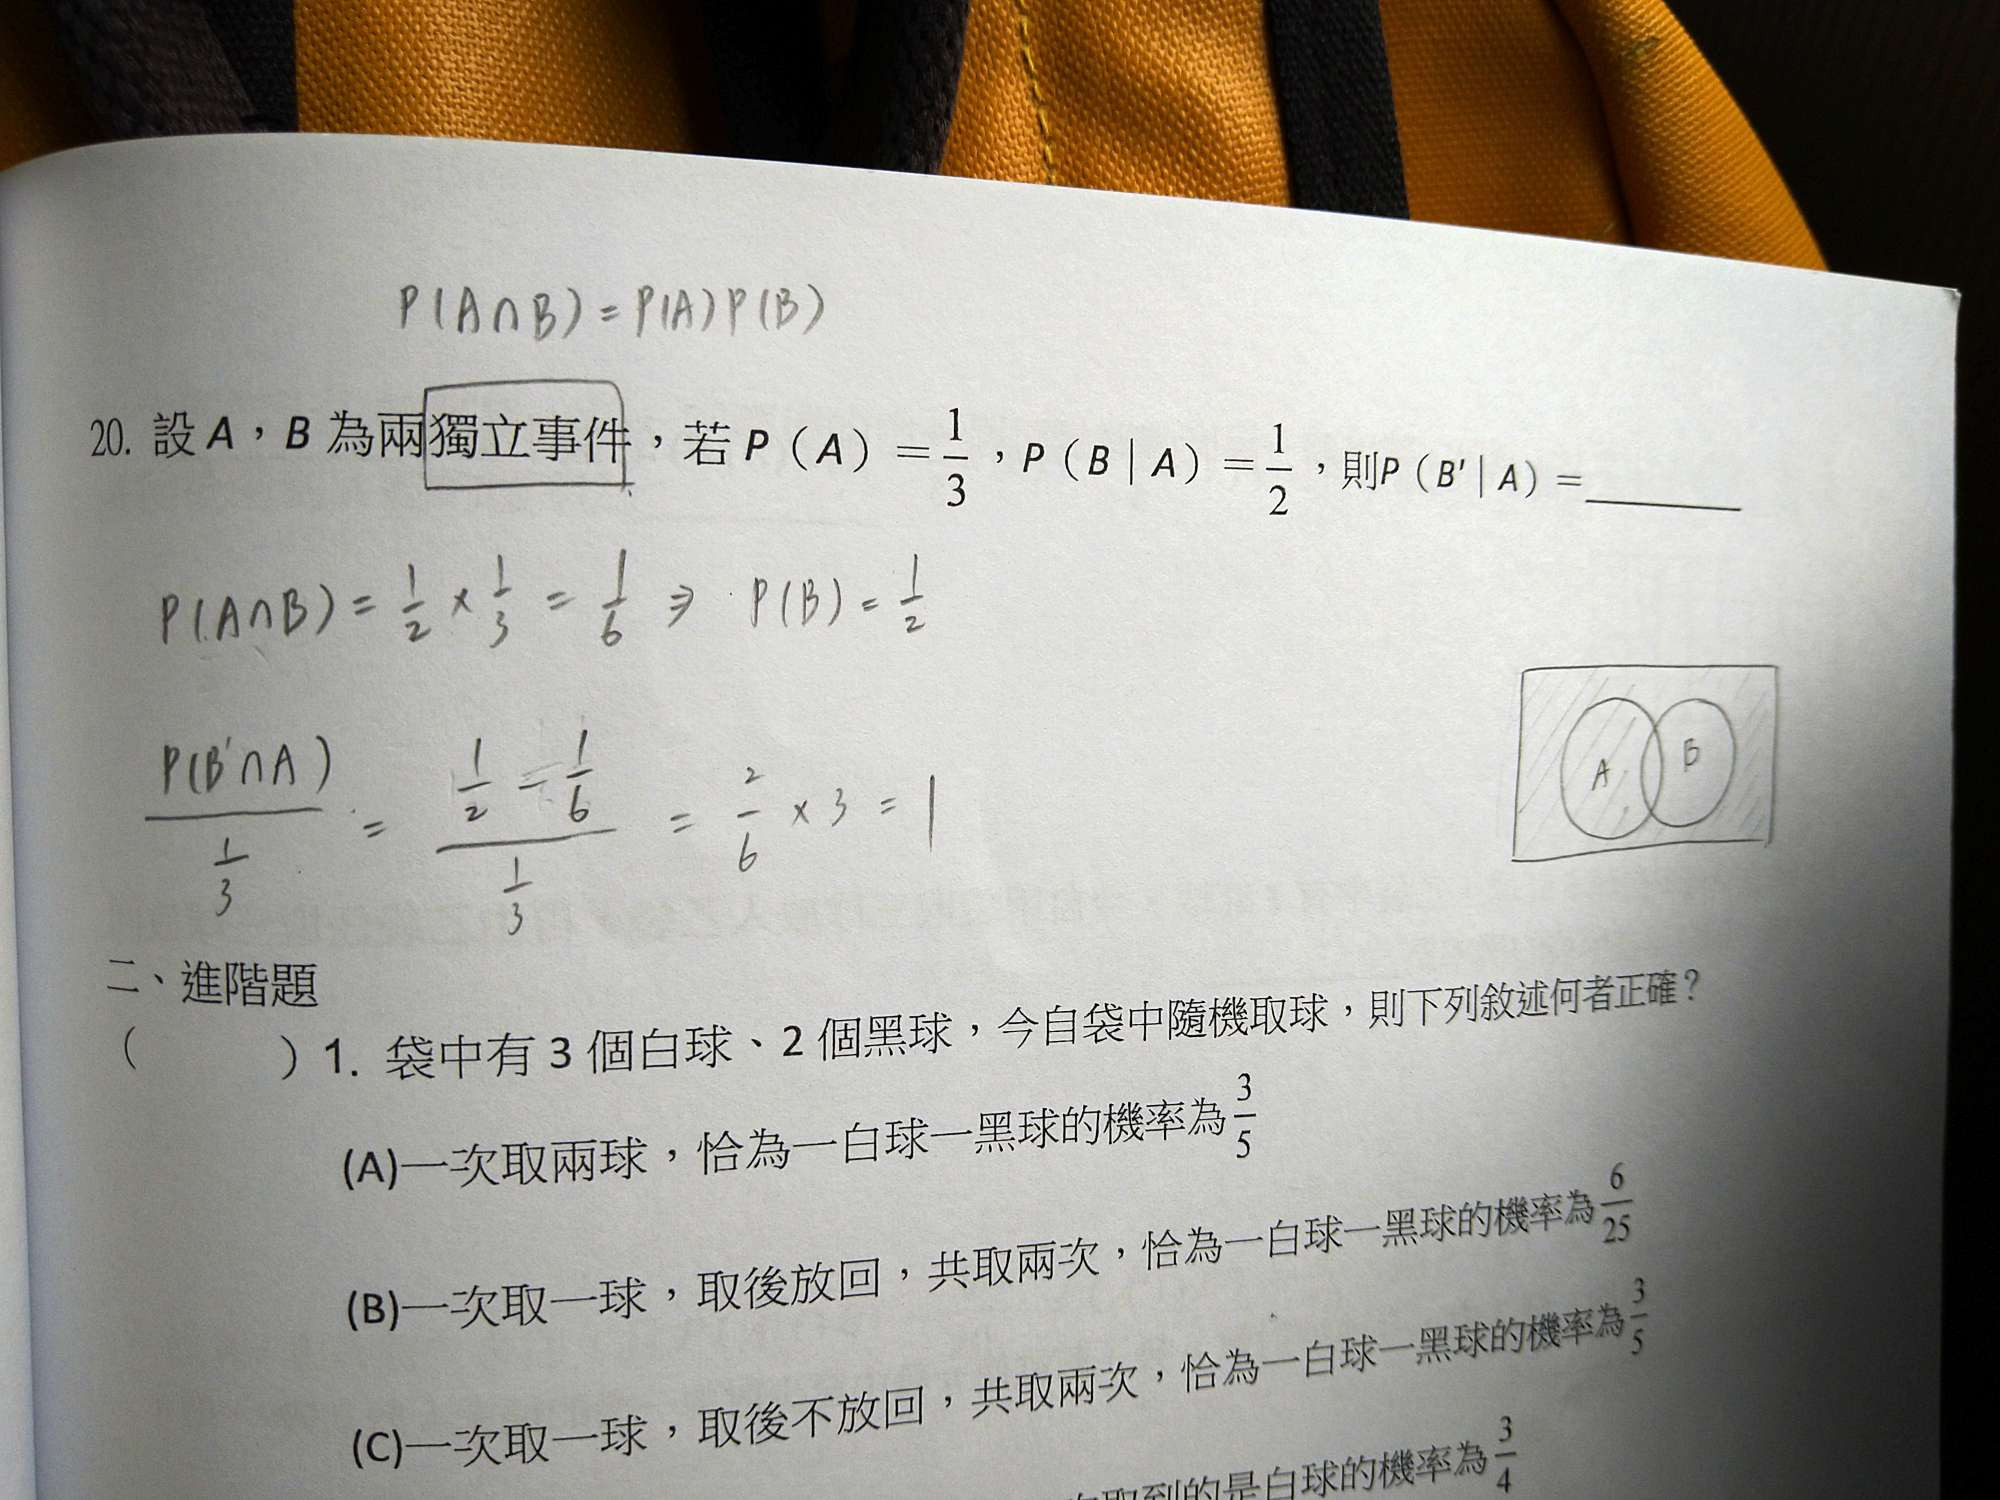 P(A∩B)=P(A)P(B)
20. 設 A，B 為兩獨立事件，若 P（A）＝1/3，P（B｜A）＝1/2，則P（B'｜A）＝______
P(A∩B) = 1/2 × 1/3 = 1/6 ⇒ P(B) = 1/2
P(B'∩A) / (1/3) = (1/2 − 1/6) / (1/3) = 2/6 × 3 = 1
A B
二、進階題
（ ）1. 袋中有 3 個白球、2 個黑球，今自袋中隨機取球，則下列敘述何者正確？
(A)一次取兩球，恰為一白球一黑球的機率為 3/5
(B)一次取一球，取後放回，共取兩次，恰為一白球一黑球的機率為 6/25
(C)一次取一球，取後不放回，共取兩次，恰為一白球一黑球的機率為 3/5
取到的是白球的機率為 3/4